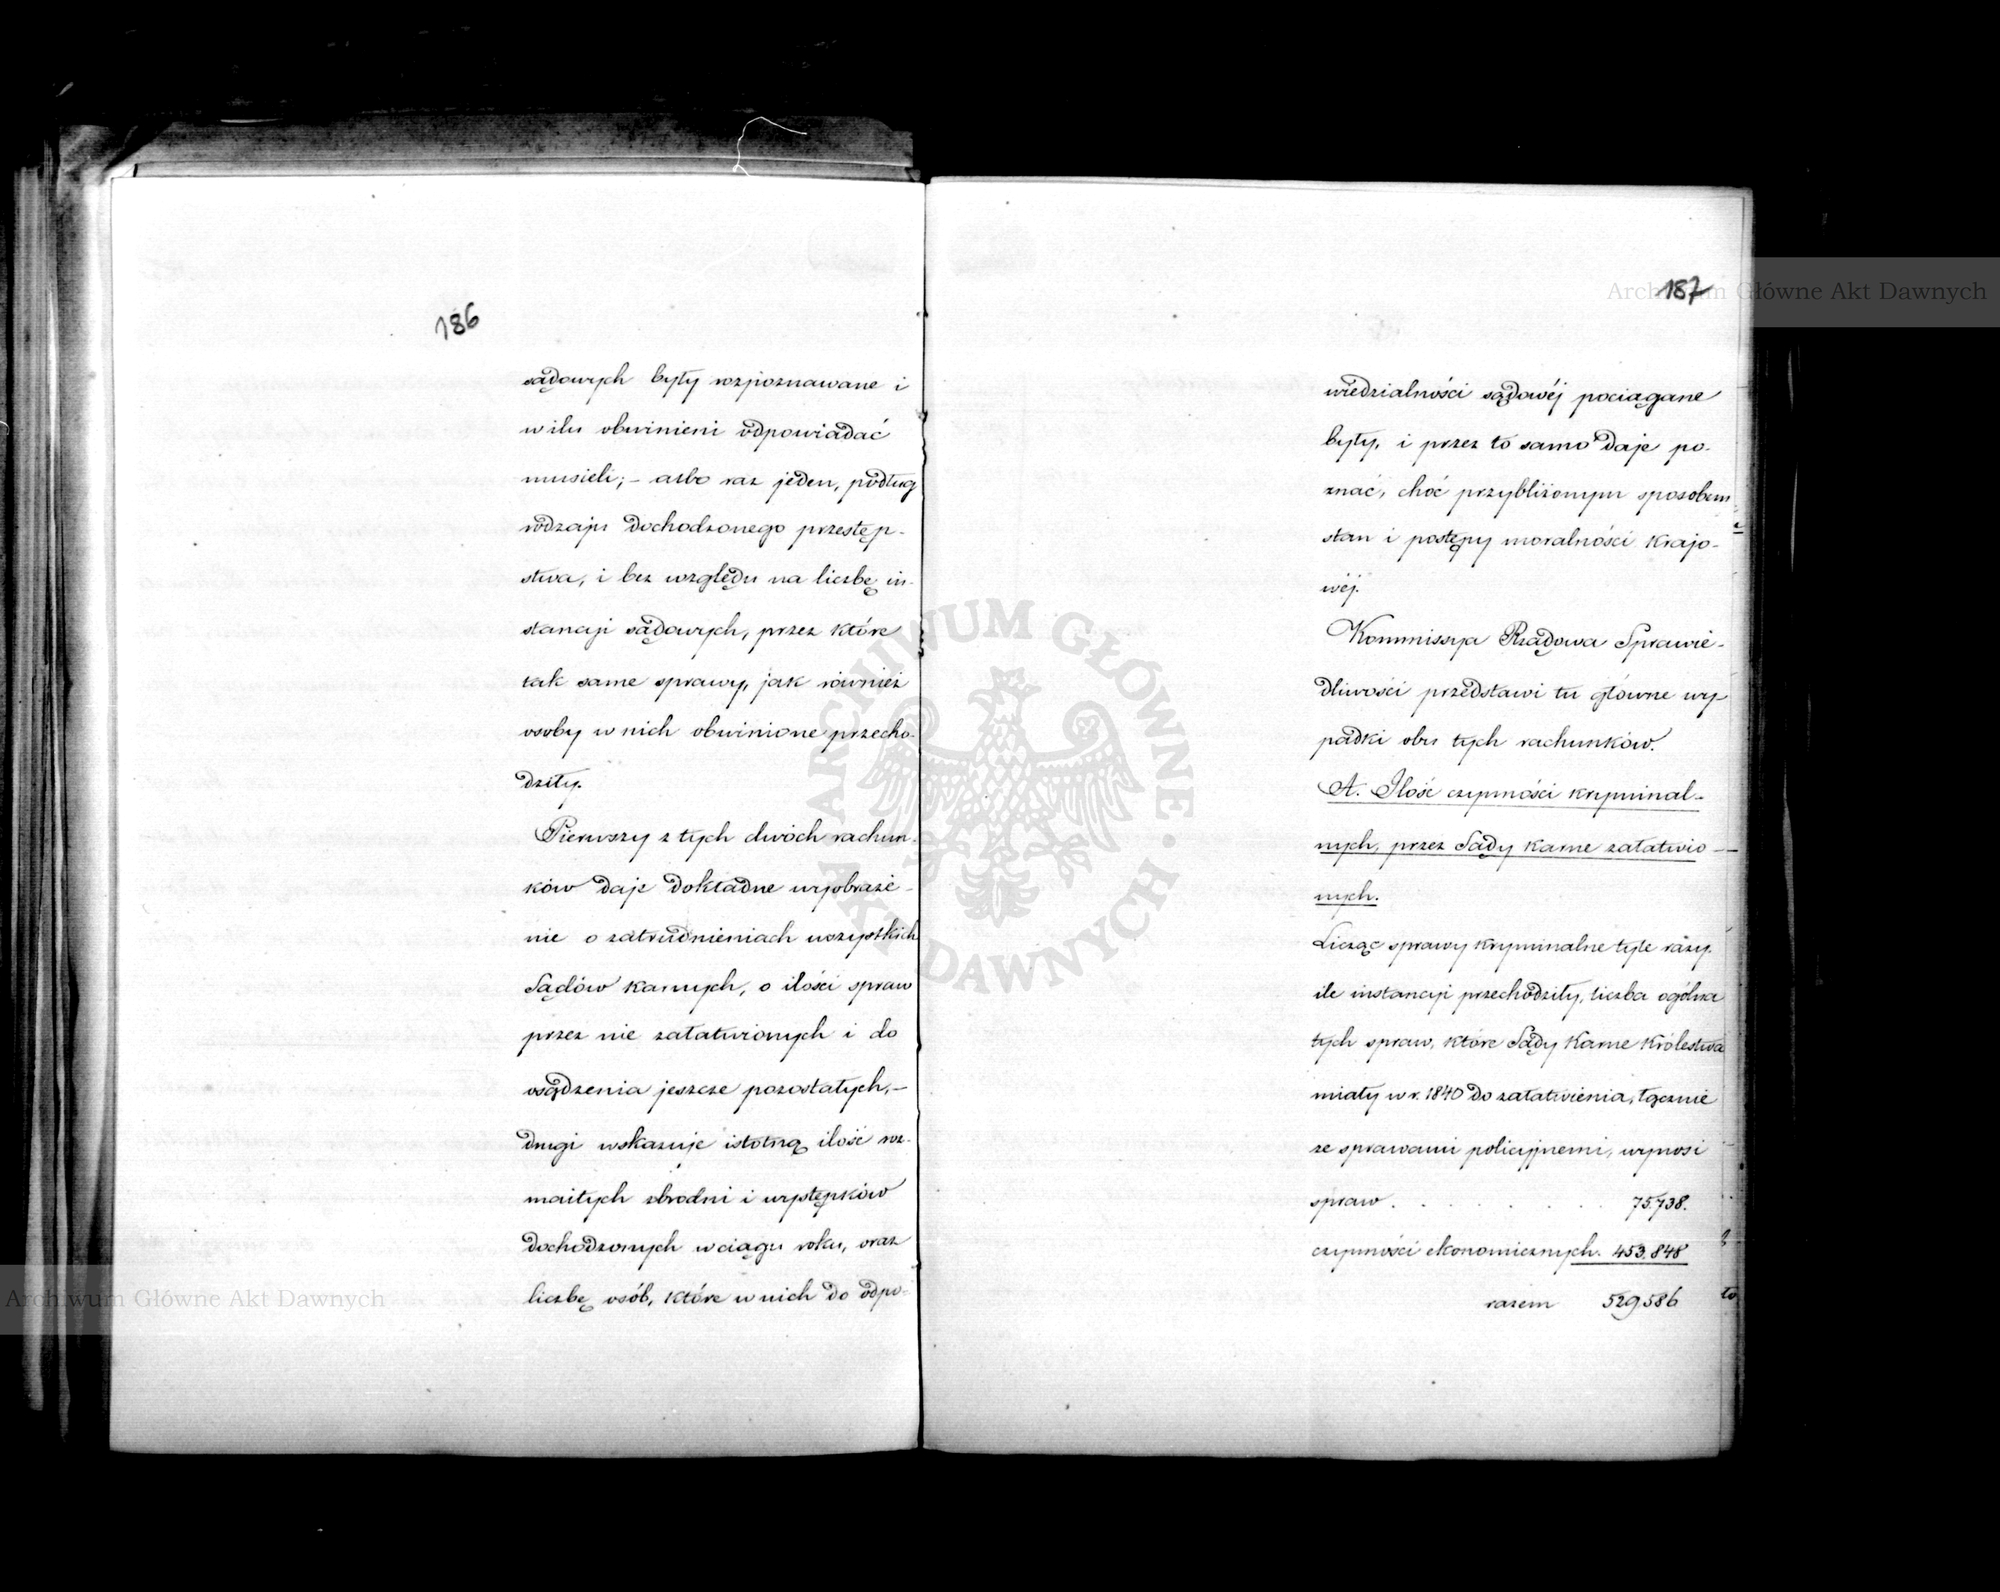 186
sądowych były rozpoznawane i
w ilu obwinieni odpowiadać
musieli; – albo raz jeden, podług
rodzaju dochodzonego przestęp-
stwa, i bez względu na liczbę in-
stancji sądowych, przez które
tak same sprawy, jak również
osoby w nich obwinione przecho-
dziły.
Pierwszy z tych dwóch rachun-
ków daje dokładne wyobraże-
nie o zatrudnieniach wszystkich
Sądów karnych, o ilości spraw
przez nie załatwionych i do
osądzenia jeszcze pozostałych, –
drugi wskazuje istotną ilość roz-
maitych zbrodni i występków
dochodzonych w ciągu roku, oraz
liczbę osób, które w nich do odpo-
187
wiedzialności sądowéj pociągane
były, i przez to samo daje po-
znać, choć przybliżonym sposobem
stan i postępy moralności krajo-
wéj.
Kommissya Rządowa Sprawie-
dliwości przedstawi tu główne wy-
padki obu tych rachunków.
A. Ilość czynności kryminal-
nych, przez Sądy karne załatwio-
nych.
Licząc sprawy kryminalne tyle razy,
ile instancji przechodziły, liczba ogólna
tych spraw, które Sądy Karne Królestwa
miały w r. 1840 do załatwienia, łącznie
ze sprawami policyjnemi, wynosi
spraw . . . . . . . . 75.738.
czynności ekonomicznych. 453.848
razem 529.586
to
Archiwum Główne Akt Dawnych
Archiwum Główne Akt Dawnych
ARCHIWUM GŁÓWNE · AKT DAWNYCH ·